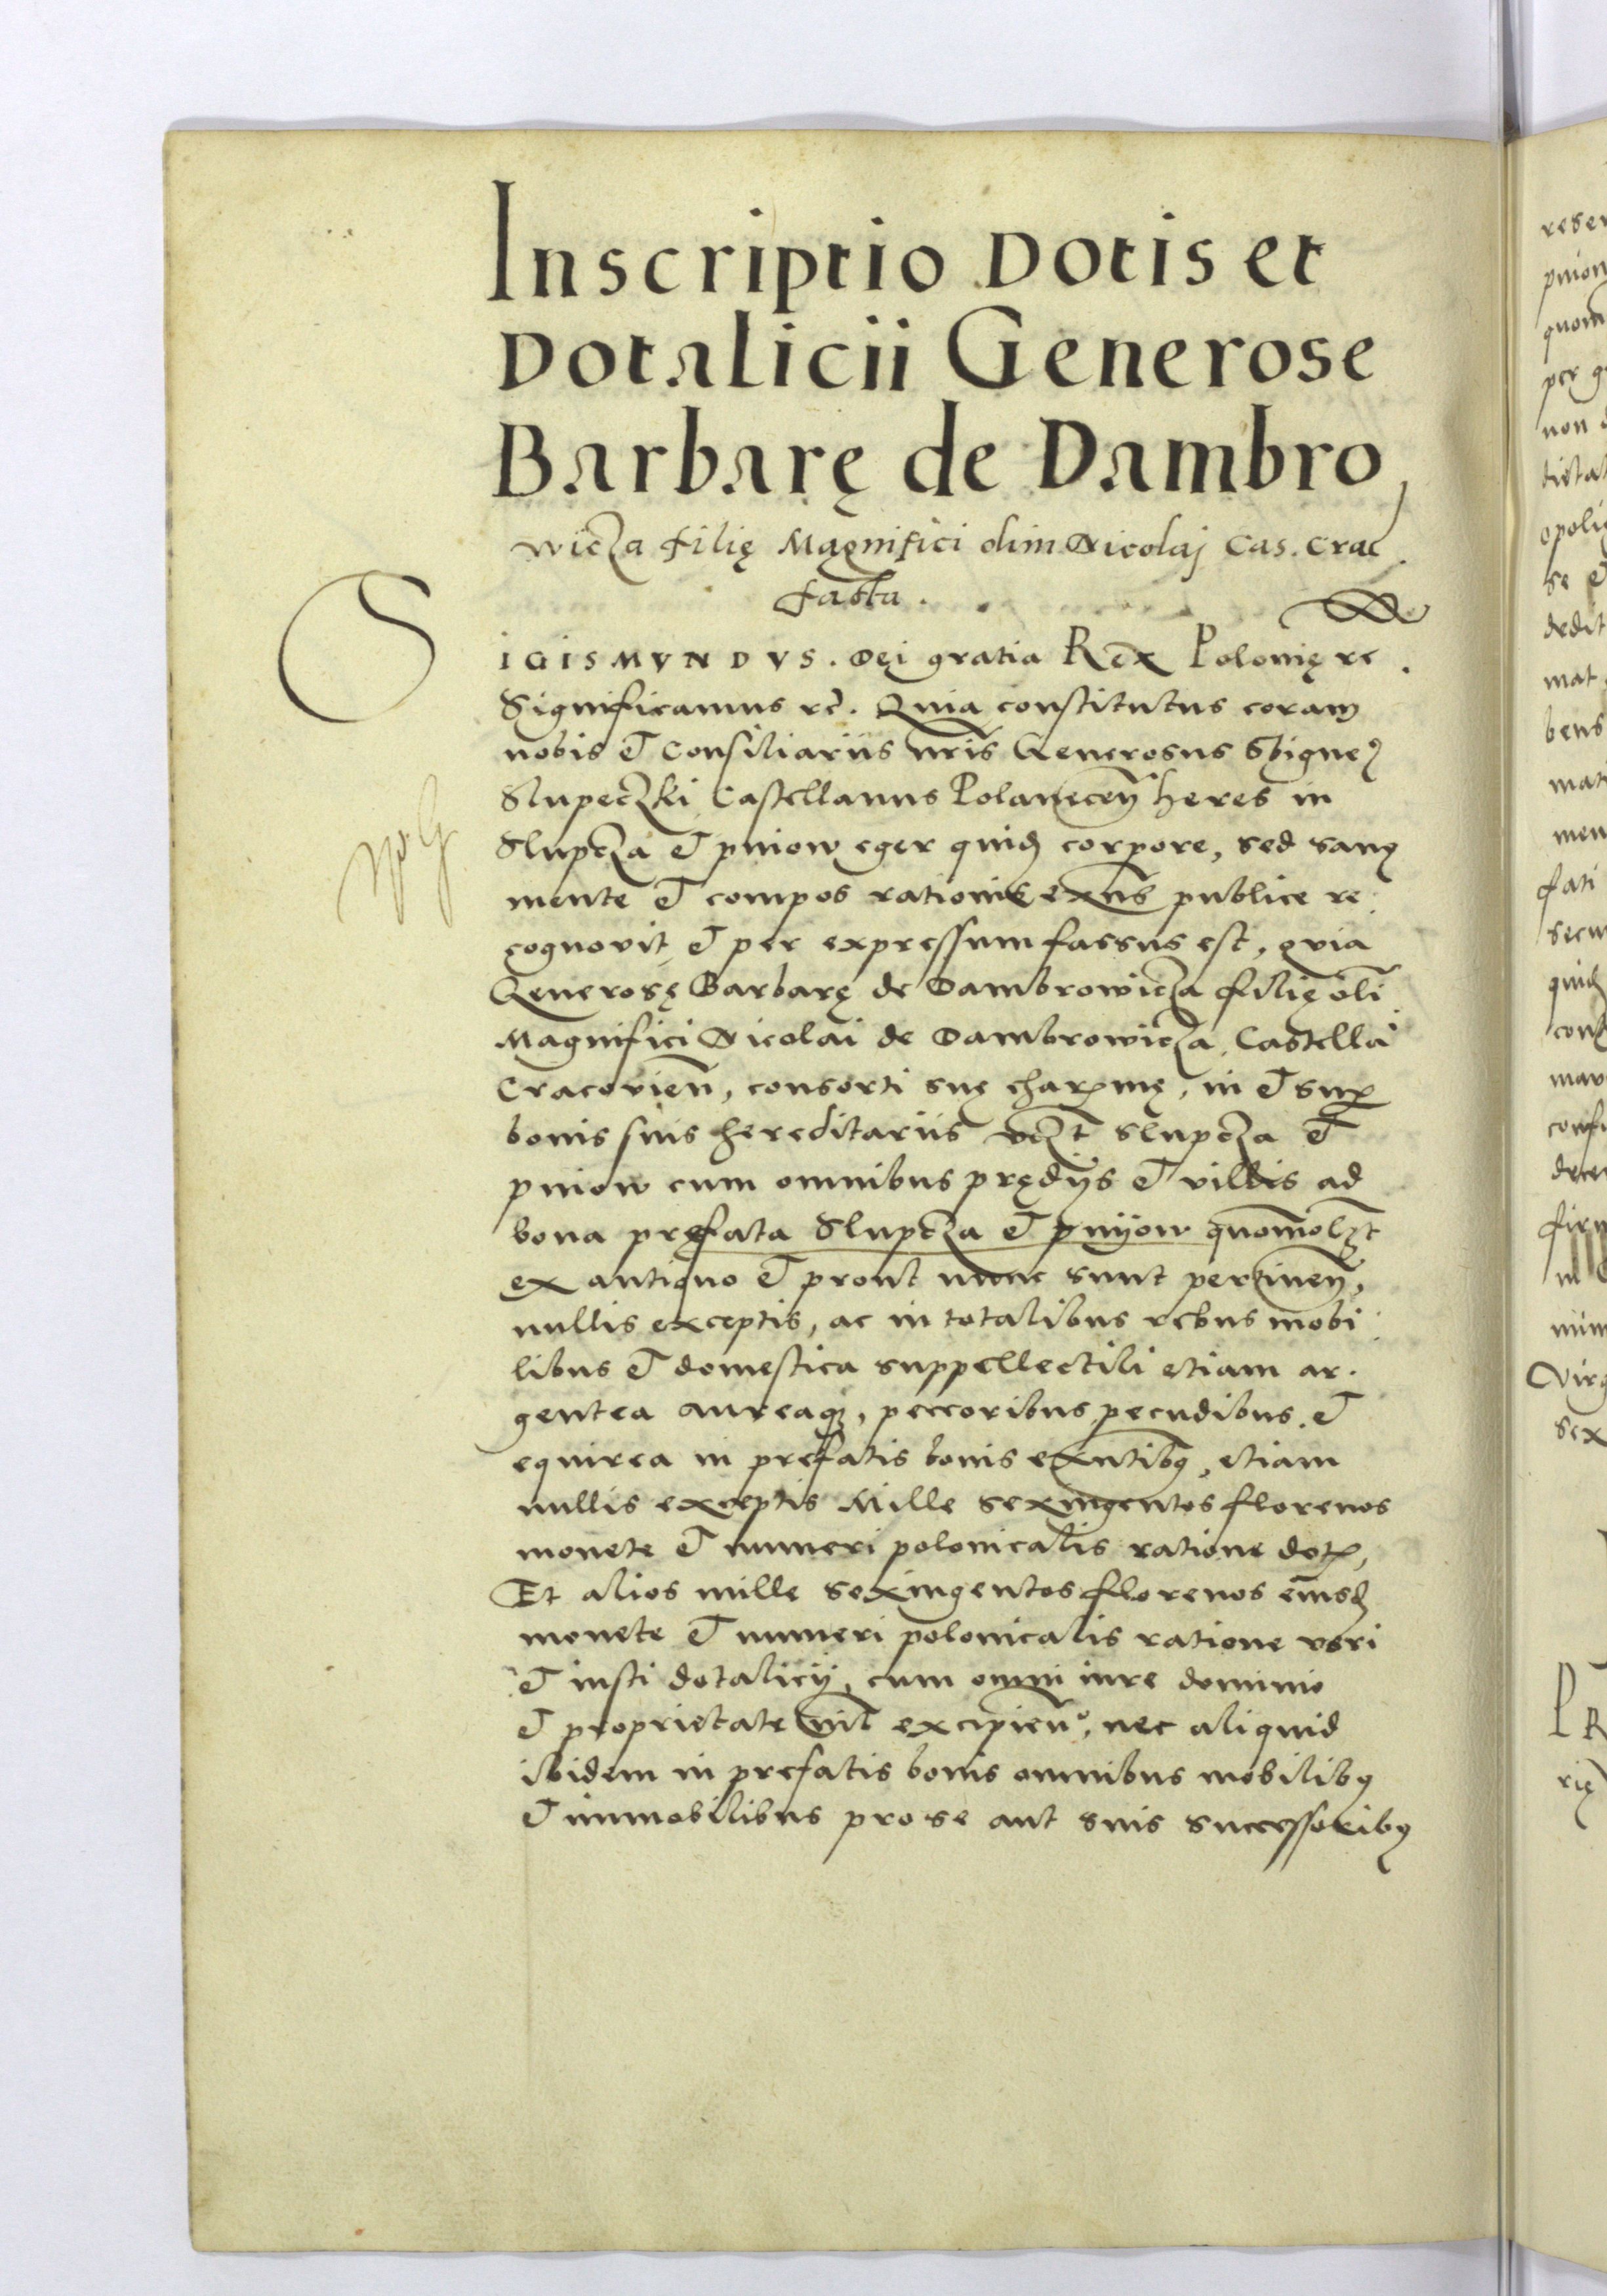 Inscriptio Dotis et
Dotalicii Generose
Barbarę de Dambro
wicza filię Magnifici olim Nicolaj Cas. Crac.
facta.
SIGISMVNDVS. Dei gratia Rex Polonię rc.
Significamus rc. Quia constitutus coram
nobis et Consiliariis nris Generosus Sbigne9
Slupeczki Castellanus Polanecen heres in
Slupcza et pniow eger quid corpore, sed sanꝰ
mente et compos rationis exns publice re
cognovit et per expressum fassus est, quia
Generosę Barbarę de Dambrowicza filię oli
Magnifici Nicolai de Dambrowicza Castella
Cracovien, consorti suę charmę, in et sup
bonis suis hereditariis vczt Slupcza et
pniow cum omnibus prędijs et villis ad
bona prefata Slupcza et pnijow quomolzt
ex antiquo et prout nunc sunt pertinen,
nullis exceptis, ac in totalibus rebus mobi
libus et domestica suppellectili etiam ar
gentea aureaqꝫ, peccoribus pecudibus et
equirea in prefatis bonis exntibꝰ, etiam
nullis exceptis Mille sexingentos florenos
monete et numeri polonicalis ratione dot,
Et alios mille sexingentos florenos eiusd
monete et numeri polonicalis ratione veri
et iusti dotalicij, cum omni iure dominio
et proprietate nil excipien, nec aliquid
ibidem in prefatis bonis omnibus mobilibꝰ
et immobilibus pro se aut suis successoribꝰ